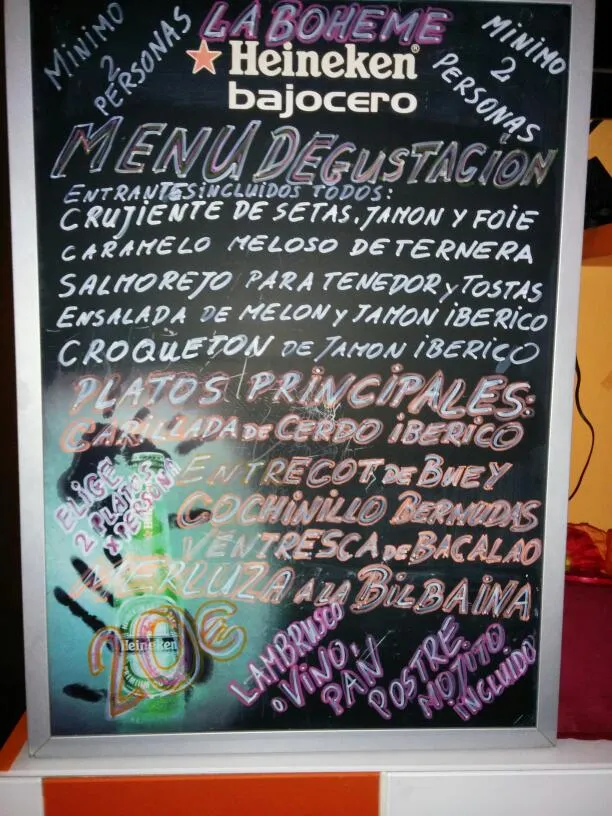 LA BOHEME
MINIMO
2
PERSONAS
MINIMO
2
PERSONAS
Heineken®
bajocero
MENU DEGUSTACIÓN
ENTRANTES INCLUIDOS TODOS:
CRUJIENTE DE SETAS, JAMON Y FOIE
CARAMELO MELOSO DE TERNERA
SALMOREJO PARA TENEDOR Y TOSTAS
ENSALADA DE MELON Y JAMON IBERICO
CROQUETON DE JAMON IBERICO
PLATOS PRINCIPALES:
CARILLADA DE CERDO IBERICO
ENTRECOT DE BUEY
COCHINILLO BERMUDAS
VENTRESCA DE BACALAO
MERLUZA A LA BILBAINA
ELIGE
2 PLATOS
X PERSONA
20€
Heineken
LAMBRUSCO
O VINO,
PAN
POSTRE
MOJITO
INCLUIDO